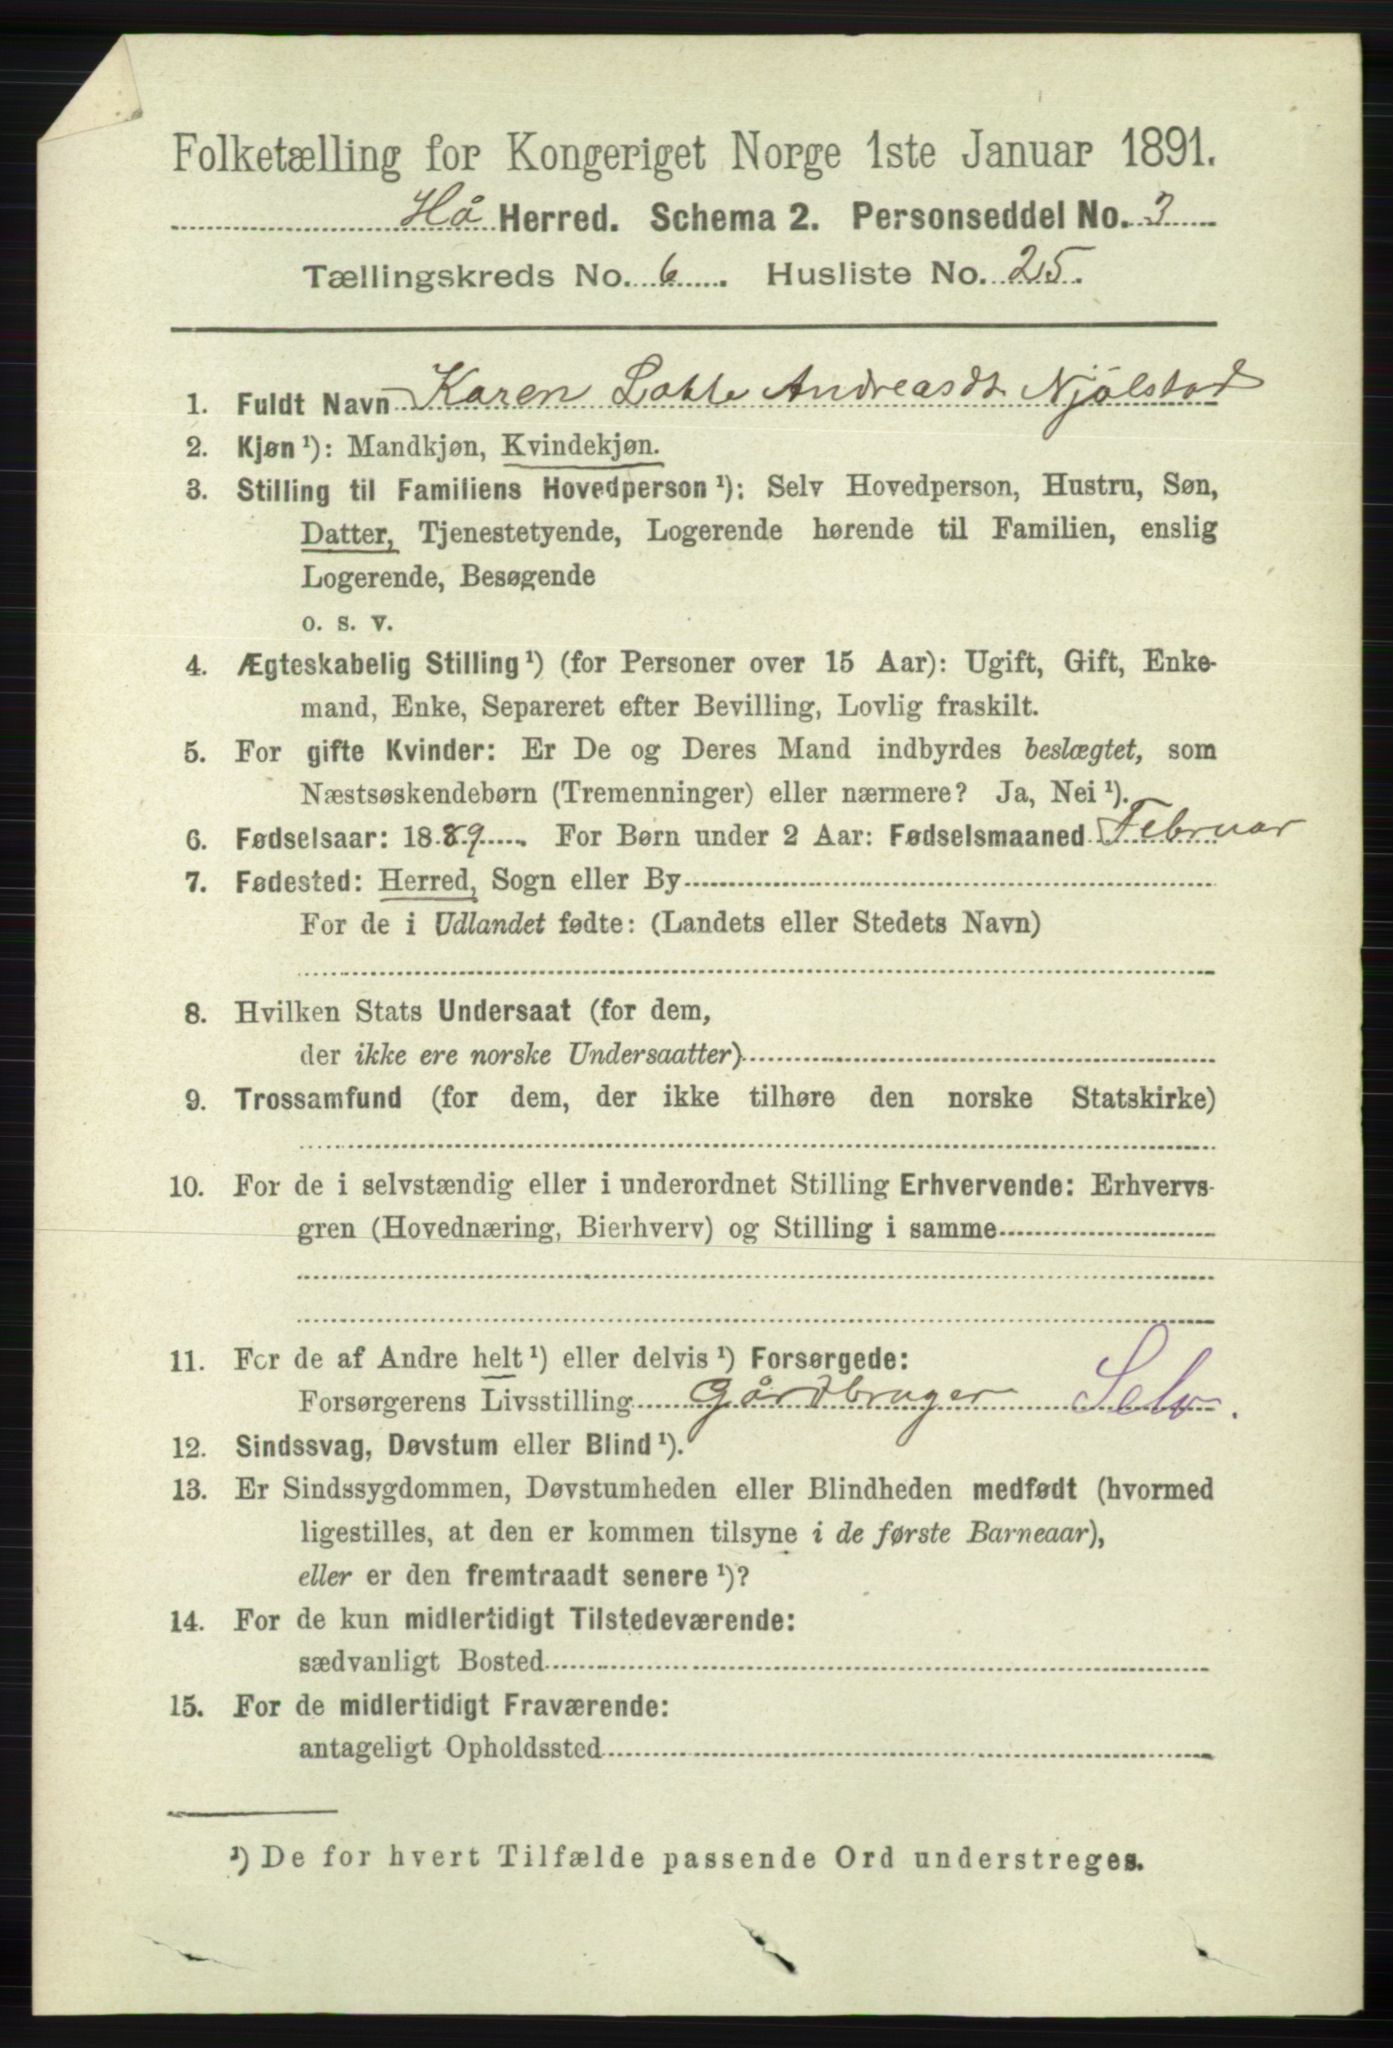 Folketælling for Kongeriget Norge 1ste Januar 1891.
Hå Herred. Schema 2. Personseddel No. 3
Tællingskreds No. 6. Husliste No. 25.
1. Fuldt Navn Karen Lotte Andreasdt Njölstad
2. Kjøn¹): Mandkjøn, Kvindekjøn.
3. Stilling til Familiens Hovedperson¹): Selv Hovedperson, Hustru, Søn,
Datter, Tjenestetyende, Logerende hørende til Familien, enslig
Logerende, Besøgende
o. s. v.
4. Ægteskabelig Stilling¹) (for Personer over 15 Aar): Ugift, Gift, Enke-
mand, Enke, Separeret efter Bevilling, Lovlig fraskilt.
5. For gifte Kvinder: Er De og Deres Mand indbyrdes beslægtet, som
Næstsøskendebørn (Tremenninger) eller nærmere? Ja, Nei¹).
6. Fødselsaar: 1889. For Børn under 2 Aar: Fødselsmaaned Februar
7. Fødested: Herred, Sogn eller By
For de i Udlandet fødte: (Landets eller Stedets Navn)
8. Hvilken Stats Undersaat (for dem,
der ikke ere norske Undersaatter)
9. Trossamfund (for dem, der ikke tilhøre den norske Statskirke)
10. For de i selvstændig eller i underordnet Stilling Erhvervende: Erhvervs-
gren (Hovednæring, Bierhverv) og Stilling i samme
11. For de af Andre helt¹) eller delvis¹) Forsørgede:
Forsørgerens Livsstilling Gårdbruger Selv.
12. Sindssvag, Døvstum eller Blind¹).
13. Er Sindssygdommen, Døvstumheden eller Blindheden medfødt (hvormed
ligestilles, at den er kommen tilsyne i de første Barneaar),
eller er den fremtraadt senere¹)?
14. For de kun midlertidigt Tilstedeværende:
sædvanligt Bosted
15. For de midlertidigt Fraværende:
antageligt Opholdssted
¹) De for hvert Tilfælde passende Ord understreges.